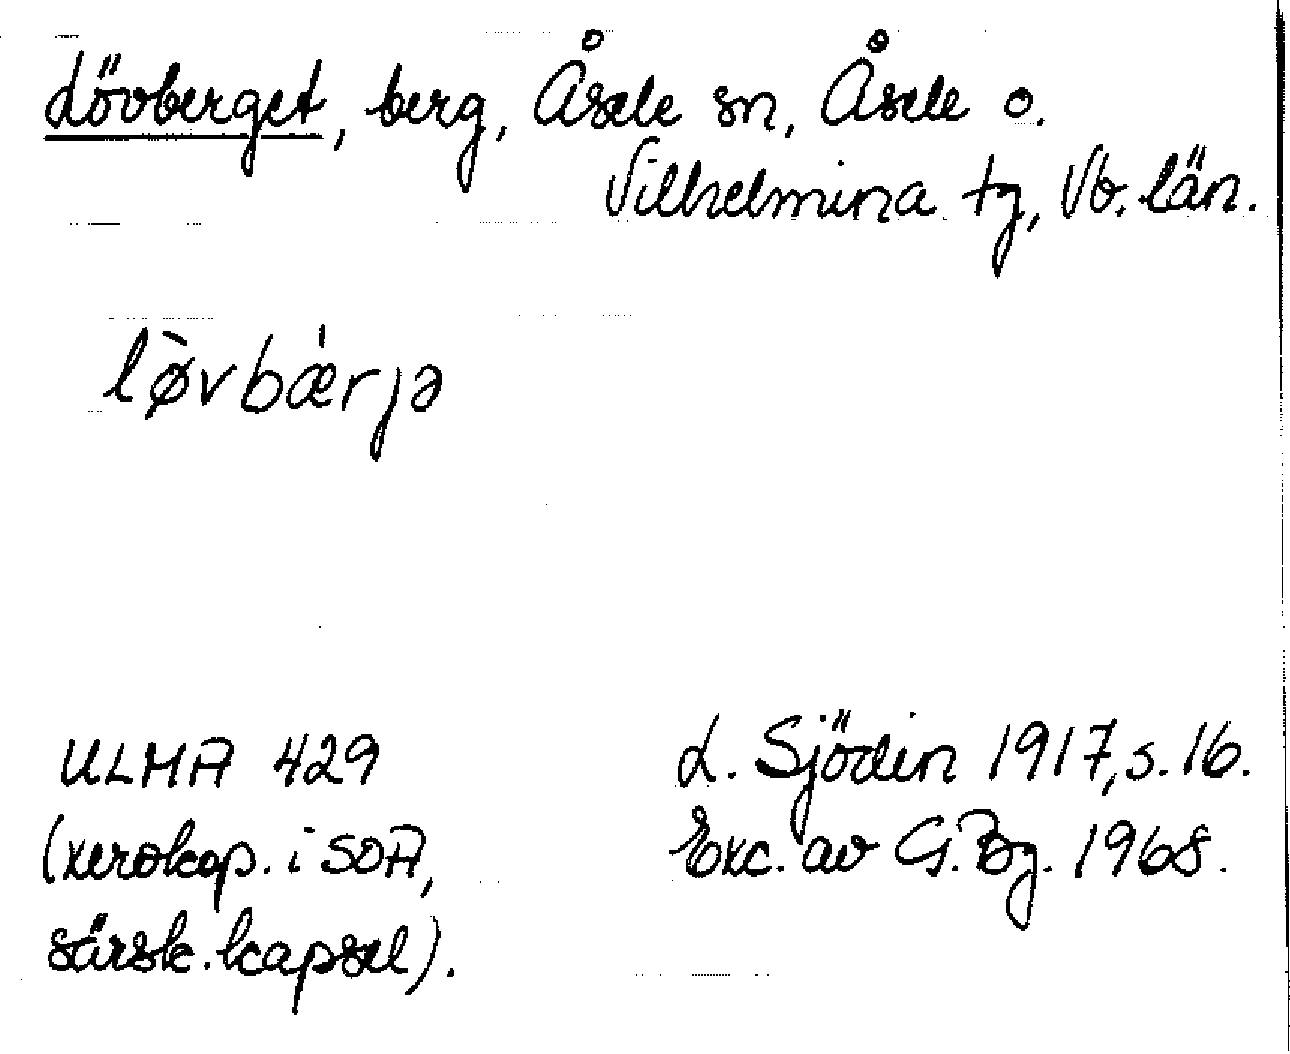 Lövberget, berg, Åsele sn, Åsele o.
Vilhelmina tg, Vb. län.
lø̀vbǽrjə
ULMA 429
(xerokop. i SOA,
särsk. kapsel).
L. Sjödin 1917, s. 16.
Exc. av G. Bg. 1968.